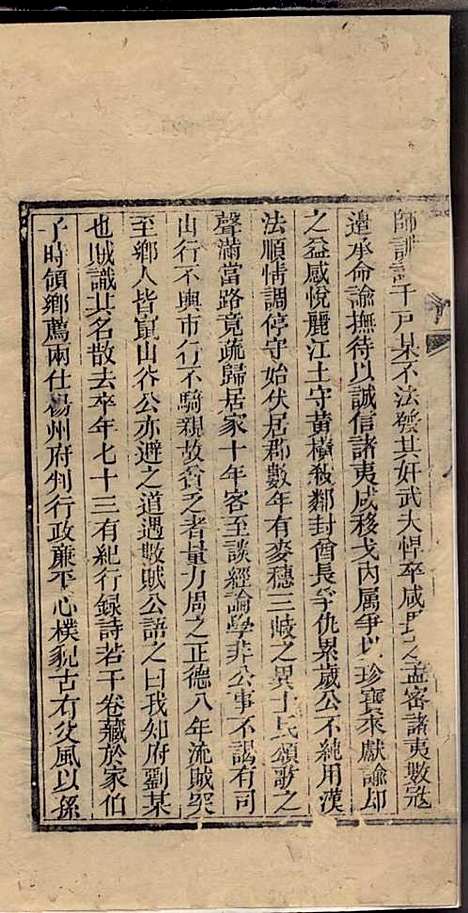 師訓䜿千戸某不法發其奸武夫悍卒咸畏之孟密諸夷數寇
邉承命諭撫待以誠信諸夷咸移戈內属爭以珍寶來獻諭却
之益感悅麗江土守黃橫殺鄰封酋長爭仇累歲公不純用漢
法順情調停守始伏居郡數年有麥穗三岐之異士民頌歌之
聲滿當路竟疏歸居家十年客至談經論學非公事不謁有司
山行不輿市行不騎親故貧乏者量力周之正德八年流賊突
至鄉人皆竄山谷公亦避之道遇數賊公語之曰我知府劉某
也賊識其名散去卒年七十三有紀行録詩若干卷藏於家伯
子時領鄉薦兩仕楊州府判行政廉平心樸貌古有父風以孫